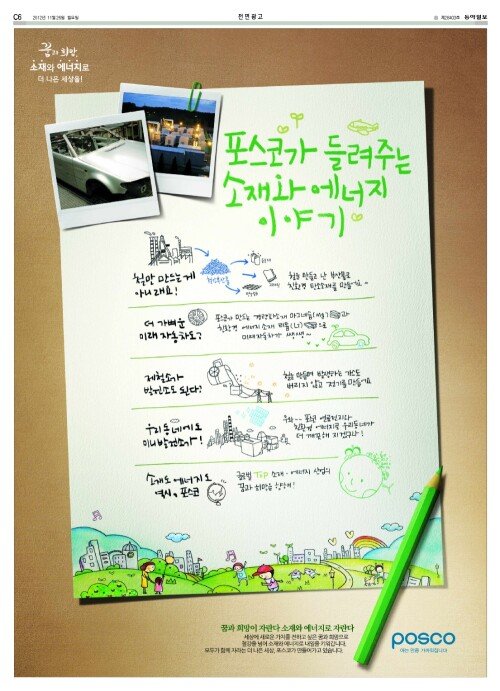 C6
2012년 11월 26일 월요일
전면광고
동아일보
꿈과 희망,
소재와 에너지로
더 나은 세상을!
포스코가 들려주는
소재와 에너지
이야기
철만 만드는게
아니래요!
철을 만들고 난 부산물로
친환경 탄소소재를 만들어요~
더 가벼운
미래 자동차도?
포스코가 만드는 경량화소재 마그네슘(Mg)과
친환경 에너지소재 리튬(Li)으로
미래자동차가 쌩쌩~
제철소가
발전소도 된다?
철을 만들며 발생하는 가스도
버리지 않고 전기를 만들어요
우리동네에도
미니발전소가!
우와~~ 포스코 연료전지라
친환경 에너지로 우리동네가
더 깨끗해 지겠구나!
소재도 에너지도
역시, 포스코
글로벌 Top 소재·에너지 산업의
꿈과 희망을 향하여!
꿈과 희망이 자란다 소재와 에너지로 자란다
세상에 새로운 가치를 전하고 싶은 꿈과 희망으로
철강을 넘어 소재와 에너지로 내일을 키워갑니다.
모두가 함께 자라는 더 나은 세상, 포스코가 만들어가고 있습니다.
posco